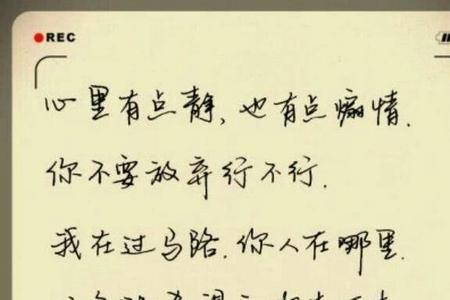 REC
心里有点静,也有点痴情.
你不要放弃行不行.
我在过马路.你人在哪里.